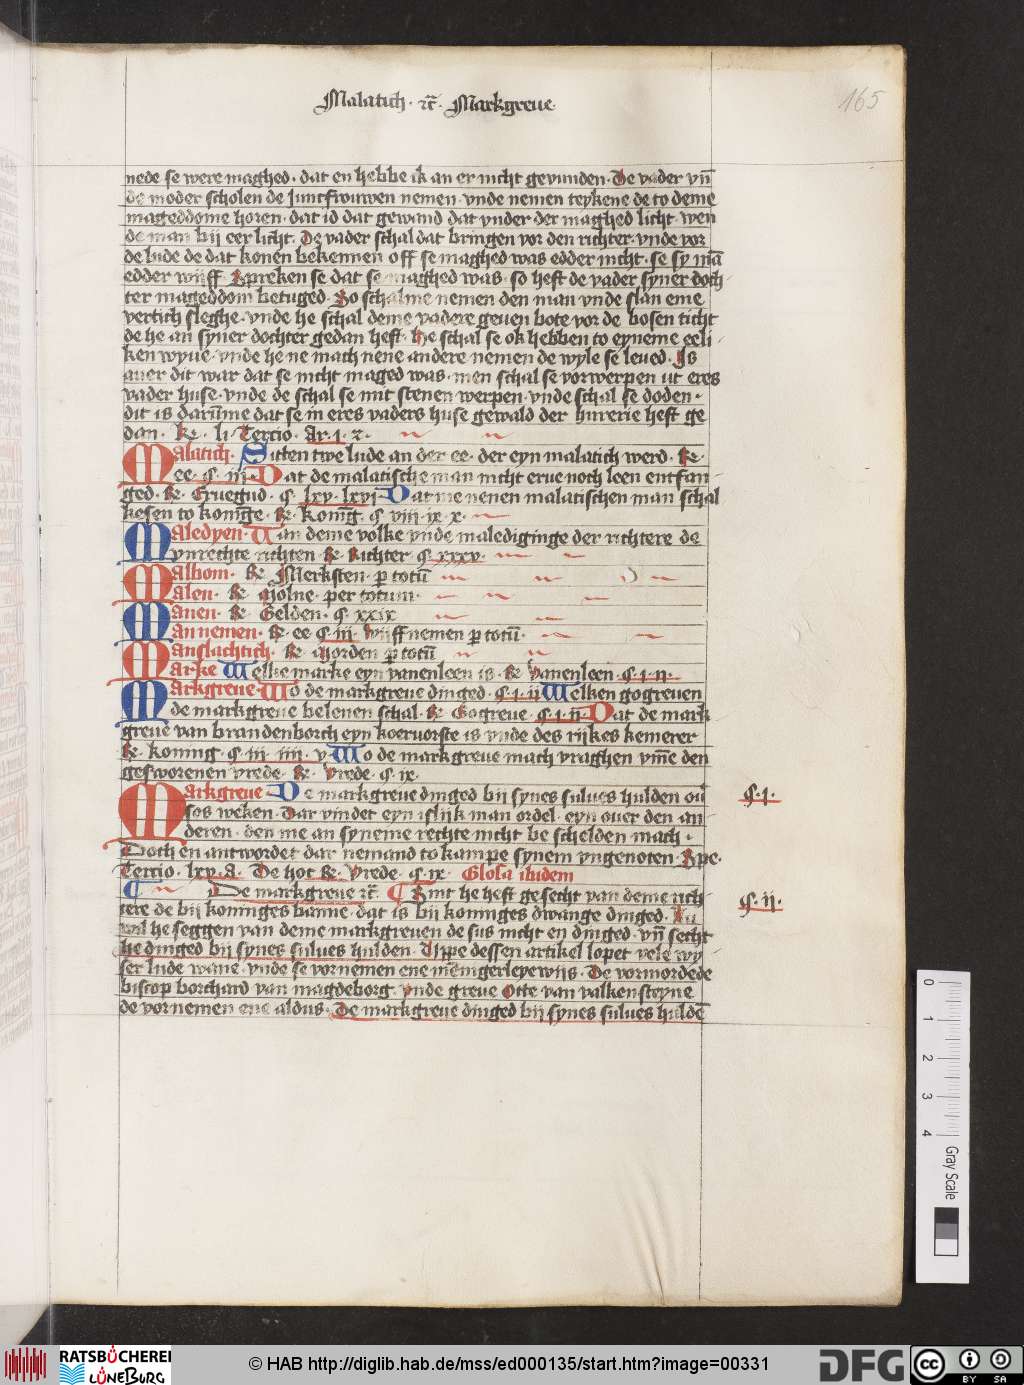 Malatich · ꝛc̄ · Markgreue
165
nede se were maghed · dat en hebbe ik an er nicht gevunden · De vader vn̄
de moder scholen de Juncfrouwen nemen · vnde nemen teykene de to deme
mageddome horen · dat id dat gewand dat vnder der maghed licht · wen
de man bij eer licht · De vader schal dat bringen vor den richter · vnde vor
de lude de dat konen bekennen off se maghed was edder nicht · se sy mā
edder wijff · Spreken se dat se maghed was · so heft de vader syner doch
ter mageddom betuged · So schalme nemen den man vnde slan eme
vertich sleghe · vnde he schal deme vadere geuen bote vor de bosen ticht
de he an syner dochter gedan heft · He schal se ok hebben to eyneme eeli
ken wyue · vnde he ne mach nene andere nemen de wyle se leued · Is
auer dit war dat se nicht maged was · men schal se vorwerpen ut eres
vader huse · vnde de schal se mit stenen werpen · vnde schal se doden ·
dit is darūme dat se in eres vaders huse gewald der hurerie heft ge
dan · R · li · Tercio · Ar · j · 2 ·
Malatich · Sitten twe lude an der ee · der eyn malatich werd · R ·
ee · ꝯ · iij · Dat de malatische man nicht erue noch leen entfan
ged · R · Eruegud · ꝯ · lxv · lxvj · Dat me nenen malatischen man schal
kesen to konīge · R · Konīg · ꝯ viij · ix · x ·
Maledyen · Van deme volke vnde malediginge der richtere de
vnrechte richten · R · Richter ꝯ xxxv ·
Malbom · R · Merksten · ꝑ totū
Malen · R · Molne · per totum ·
Manen · R · Gelden · ꝯ · xxix
Mannemen · R · ee ꝯ · iij · Wijff nemen ꝑ totū ·
Manslachtich · R · Morden ꝑ totū
Marke Welke marke eyn vanenleen is · R · Vanenleen · ꝯ · j · ij ·
Markgreue · Wo de markgreue dinged · ꝯ · j · ij Welken gogreuen
de markgreue belenen schal · R · Gogreue · ꝯ · j · ij · Dat de mark
greue van brandenborch eyn koervorste is vnde des rijkes kemerer
R · koning · ꝯ · iij · iiij · v · Wo de markgreue mach vraghen vm̄e den
gesworenen vrede · R · Vrede · ꝯ · ix ·
Markgreue · De markgreue dinged bij synes sulues hulden ou̅
ses weken · Dar vindet eyn islijk man ordel · eyn ouer den an
deren · den me an syneme rechte nicht be schelden mach ·
Doch en antwordet dar nemand to kampe synem vngenoten · Spe ·
Tercio · lxv · A · De hot R · Vrede · ꝯ · ix · Glosa ibidem
ꝯ · j ·
De markgreue ꝛc̄ · Eint he heft gesecht van deme rich
tere de bij koninges banne · dat is bij koninges dwange dinged · Nu
wil he seggen van deme markgreuen de sus nicht en dinged · vn̄ secht
he dinged bij synes sulues hulden · Uppe dessen artikel lopet vele wy
ser lude wane · vnde se vornemen ene mēnigerleye wijs · De vormordede
biscop borchard van magdeborg · vnde greue Otte van valkensteyne
de vornemen ene aldus · De markgreue dinged bij synes sulues huldē
ꝯ · ij ·
0 1 2 3 4
Gray Scale
RATSBÜCHEREI
LÜNEBURG
© HAB http://diglib.hab.de/mss/ed000135/start.htm?image=00331
DFG
cc BY SA